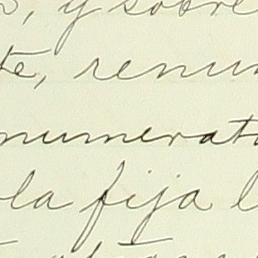 , y sobre
te, renun
numerato
la fija l